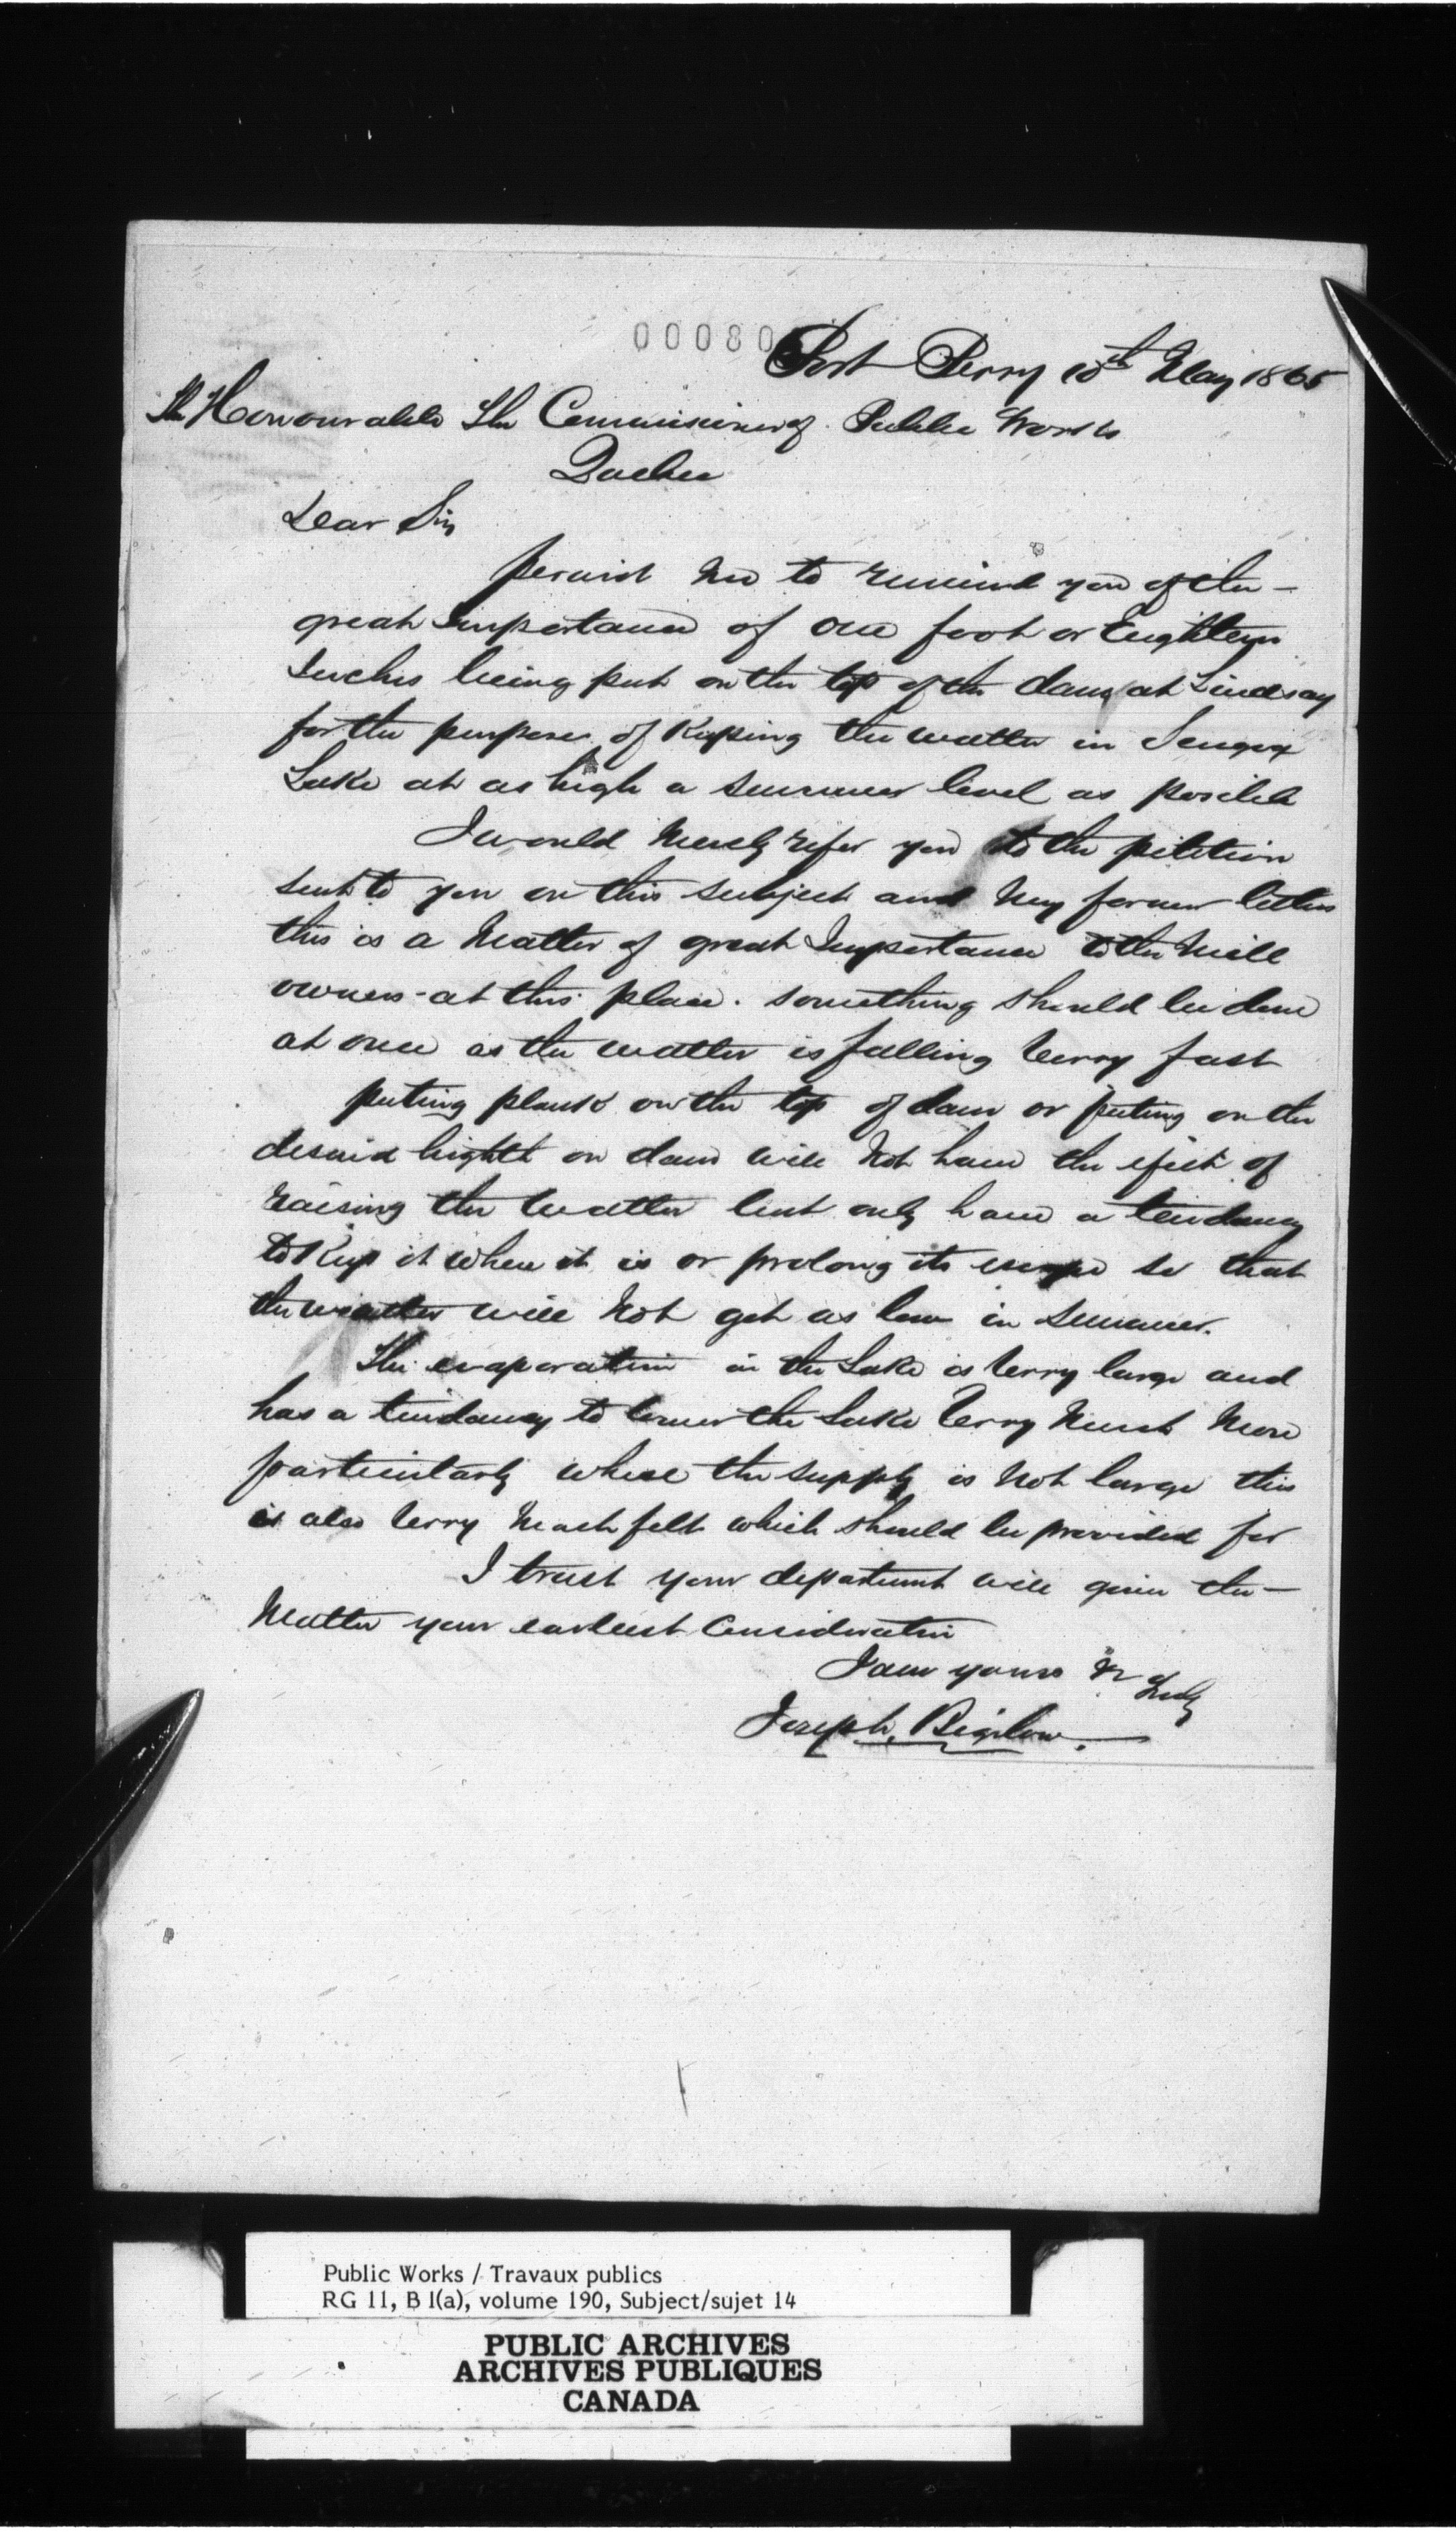 00080
Port Perry 10th May 1865
The Honourable The Commisioner of Public Works
Quebec
Dear Sir
permit me to remind you of the
great Importance of one foot or Eighteen
Inches being put on the top of the dam at Lindsay
for the purpose of Keping the watter in Scugog
Lake at as high a summer level as posible
I would merely refer you to the petition
sent to you on this subject and my former letters
this is a matter of great Importance to the mill
owners at this place. something should be done
at once as the watter is falling verry fast
puting plank on the top of dam or puting on the
desired hightt on dam will not have the efect of
raising the watter but only have a tendancy
to Kep it where it is or prolong its escape so that
the watter will not get as low in summer.
The evaporation in the Lake is verry large and
has a tendancy to lower the Lake verry much more
particularly where the supply is not large this
is also verry much felt which should be provided for
I trust your department will give the
matter your earliest Consideration
I am yours Truly
Joseph Bigelow
Public Works / Travaux publics
RG 11, B 1(a), volume 190, Subject/sujet 14
PUBLIC ARCHIVES
ARCHIVES PUBLIQUES
CANADA